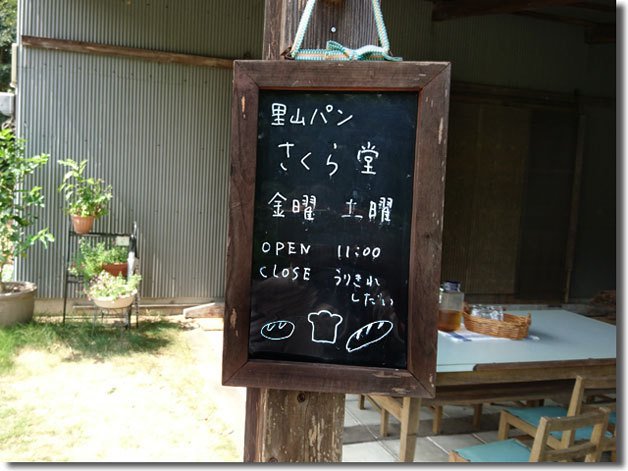 里山パン
さくら堂
金曜 土曜
OPEN 11:00
CLOSE うりきれ
しだい